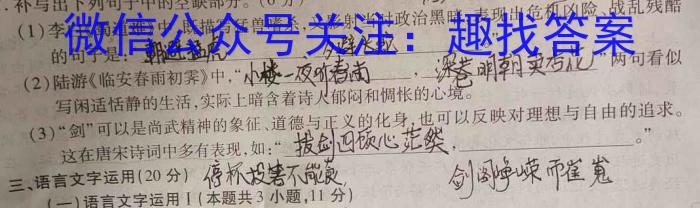 补写出下列句子中的空缺部分。(6分)
微信公众号关注：趣找答案
(2)陆游《临安春雨初霁》中，“小楼一夜听春雨，深巷明朝卖杏花”两句看似
写闲适恬静的生活，实际上暗含着诗人郁闷和惆怅的心境。
(3)“剑”可以是尚武精神的象征、道德与正义的化身，也可以反映对理想与自由的追求。
这在唐宋诗词中多有表现，如：“拔剑四顾心茫然，。”
三、语言文字运用(20分) 停杯投箸不能食 剑阁峥嵘而崔嵬
(一)语言文字运用Ⅰ(本题共3小题，11分)